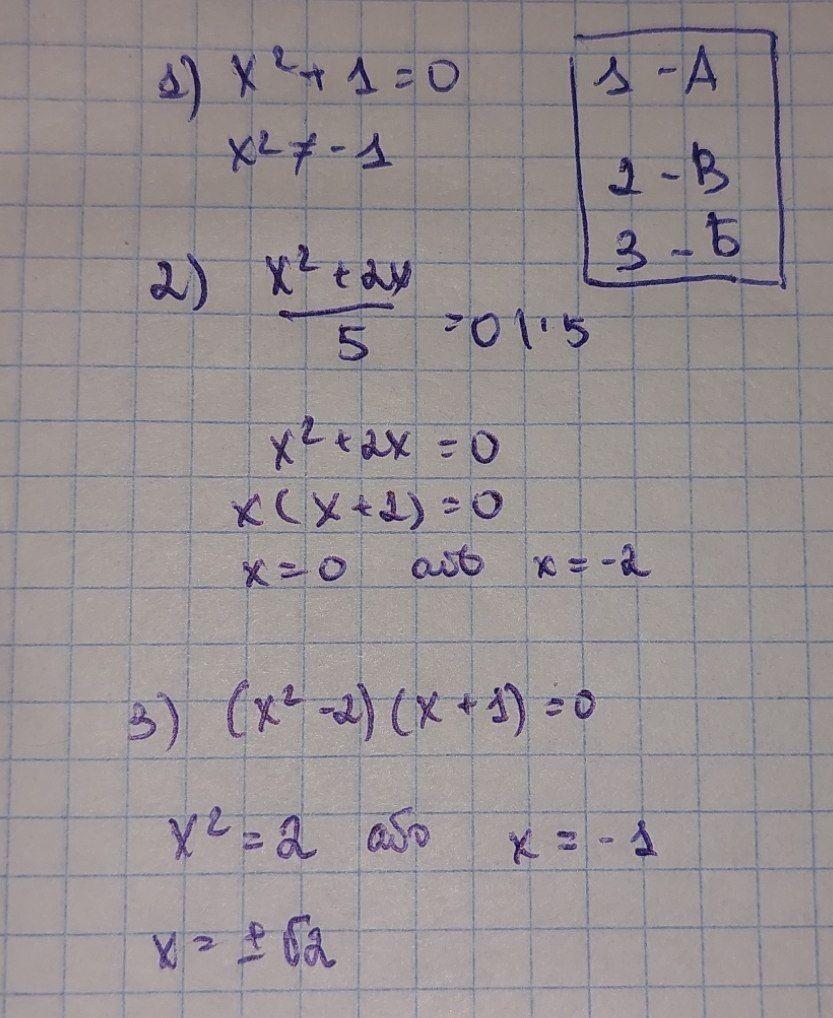 1) x² + 1 = 0
x² ≠ -1
1 - А
2 - В
3 - Б
2) x² + 2x
5
= 0 | · 5
x² + 2x = 0
x ( x + 2) = 0
x = 0 або x = -2
3) (x² - 2) (x + 1) = 0
x² = 2 або x = - 1
x = ± √2